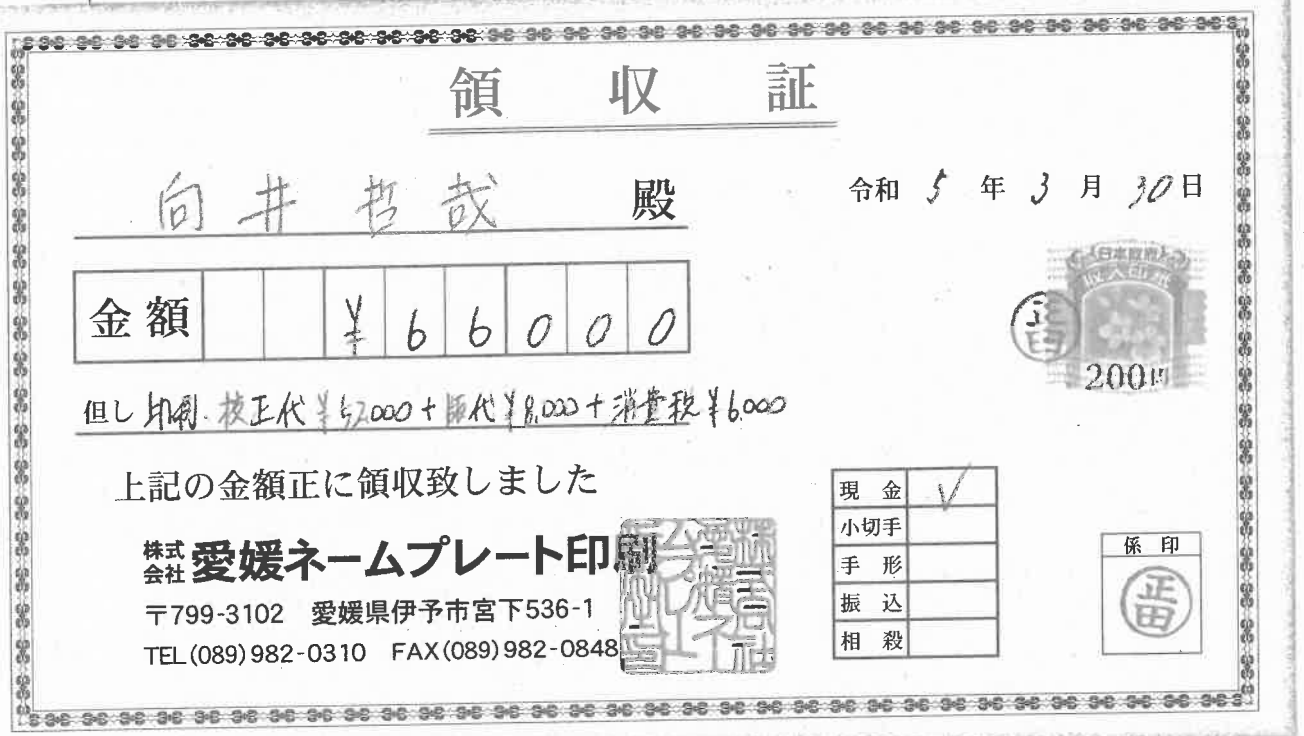 領収証
向井哲哉 殿
令和 5 年 3 月 30 日
金額 ¥66000
日本政府
収入印紙
200円
但し 印刷・校正代¥52,000+版代¥8,000+消費税¥6,000
上記の金額正に領収致しました
株式会社 愛媛ネームプレート印刷
〒799-3102 愛媛県伊予市宮下536-1
TEL(089)982-0310 FAX(089)982-0848
現金 ✓
小切手
手形
振込
相殺
係印
正田